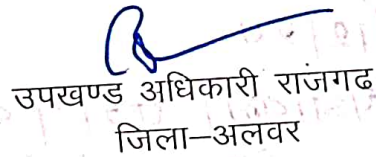 उपखण्ड अधिकारी राजगढ
जिला–अलवर